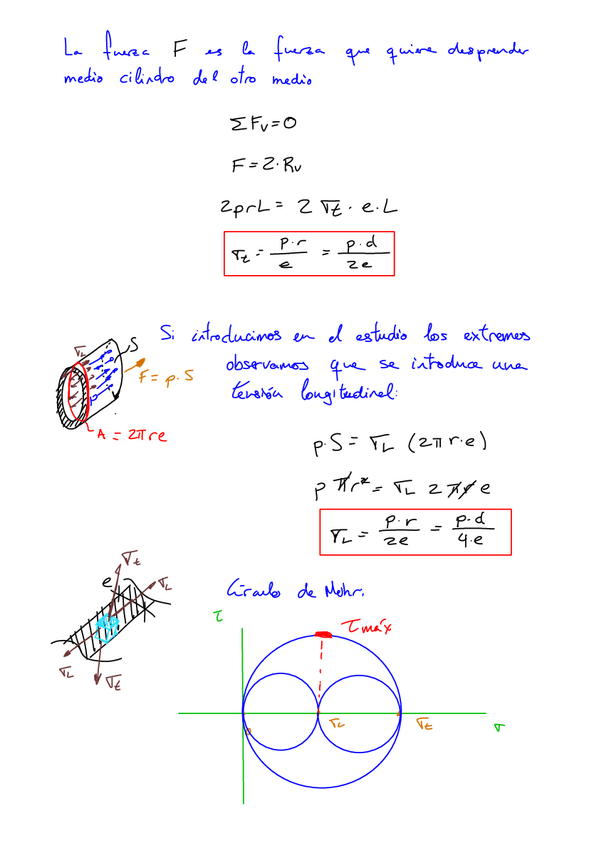 La fuerza F es la fuerza que quiere desprender
medio cilindro del otro medio
ΣFv=0
F=2·Rv
2prL= 2 σt· e·L
σt = p·r/e = p·d/2e
Si introducimos en el estudio los extremos
observamos que se introduce una
tensión longitudinal:
σL
S
F= p·S
p
A = 2πre
p·S= σL (2πr·e)
p πr²= σL 2πr e
σL = p·r/2e = p·d/4·e
Círculo de Mohr.
σt
e
σL
σL
σt
τ
τmáx
σL
σt
σ